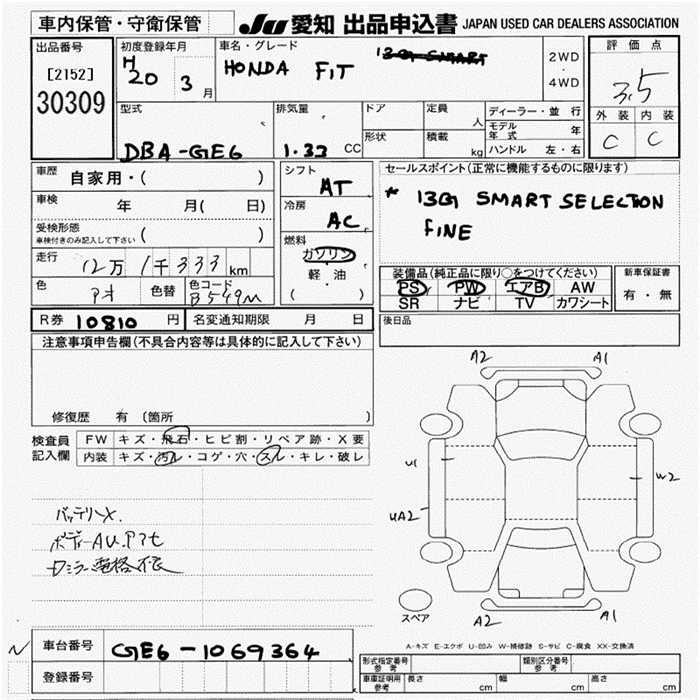 車内保管・守衛保管
JU 愛知 出品申込書 JAPAN USED CAR DEALERS ASSOCIATION
出品番号
[2152]
30309
初度登録年月
H
20 3 月
車名・グレード
13G SMART
HONDA FIT
2WD
・
4WD
評価点
3.5
外装 内装
C C
型式
DBA-GE6
排気量
1.33 CC
ドア 定員 人
形状 積載 kg
ディーラー・並行
モデル年式 年
ハンドル 左・右
車歴 自家用・( )
車検 年 月( 日)
受検形態
車検付きのみ記入して下さい ( )
走行 12万 1千 333 km
色 アオ 色替 色コード B549M
シフト
AT
冷房
AC
燃料
ガソリン
・
軽・油
( )
セールスポイント(正常に機能するものに限ります)
* 13G SMART SELECTION
FINE
装備品(純正品に限り○をつけてください)
PS PW エアB AW
SR ナビ TV カワシート
新車保証書
有・無
R券 10810 円 名変通知期限 月 日
後日品
注意事項申告欄(不具合内容等は具体的に記入して下さい)
修復歴 有 (箇所 )
検査員
記入欄
FW キズ・飛石・ヒビ割・リペア跡・X要
内装 キズ・汚レ・コゲ・穴・スレ・キレ・破レ
バッテリーX.
ボディーAU.
A2 A1
U1 W2
UA2
A2 A1
スペア
A-キズ E-エクボ U-凹み W-補修跡 S-サビ C-腐食 XX-交換済
N
車台番号 GE6-1069364
登録番号
形式指定番号 参考 類別区分番号 参考
車庫証明用 参考 長さ cm 幅 cm 高さ cm